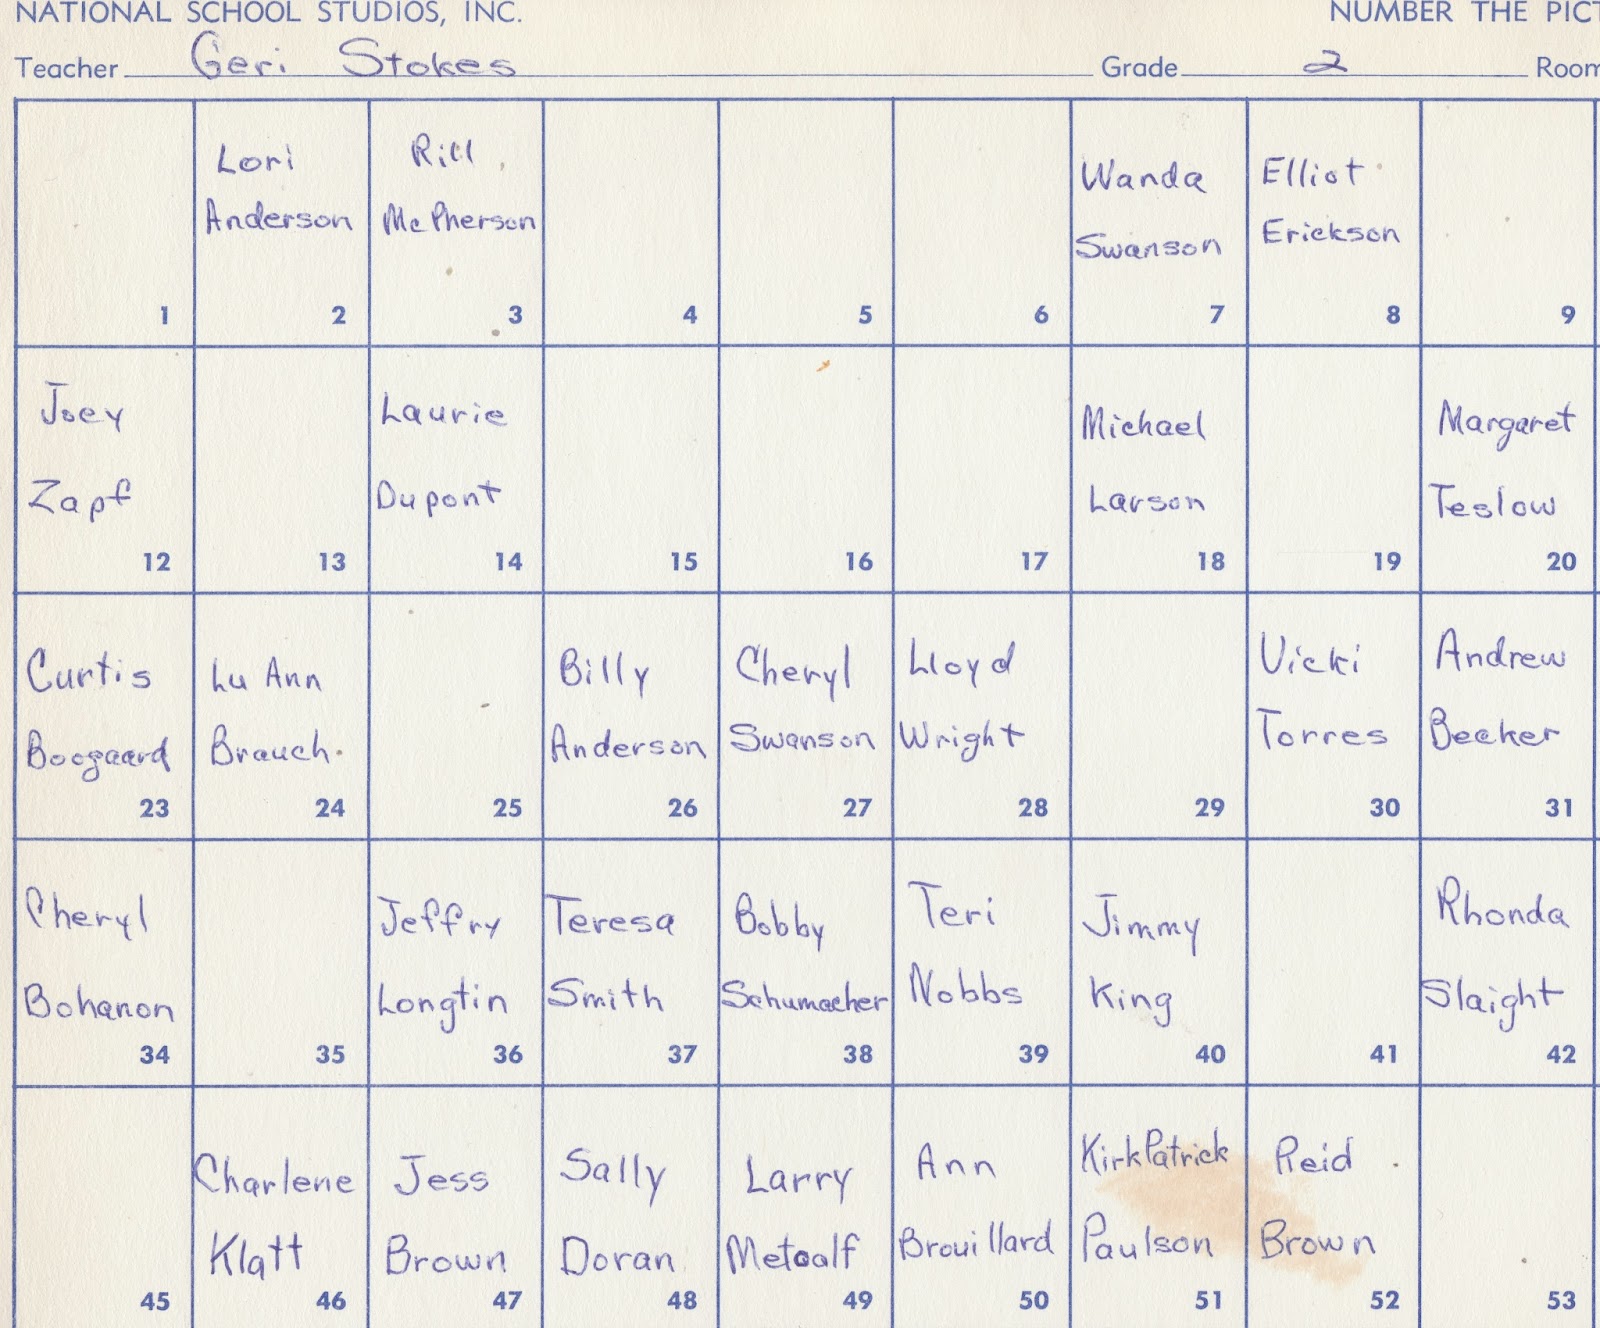 NATIONAL SCHOOL STUDIOS, INC. NUMBER THE PICT
Teacher Geri Stokes Grade 2 Room
Lori Rill Wanda Elliot
Anderson McPherson Swanson Erickson
1 2 3 4 5 6 7 8 9
Joey Laurie Michael Margaret
Zapf Dupont Larson Teslow
12 13 14 15 16 17 18 19 20
Curtis Lu Ann Billy Cheryl Lloyd Vicki Andrew
Boogaard Brauch. Anderson Swanson Wright Torres Becker
23 24 25 26 27 28 29 30 31
Cheryl Jeffry Teresa Bobby Teri Jimmy Rhonda
Bohanon Longtin Smith Schumacher Nobbs King Slaight
34 35 36 37 38 39 40 41 42
Charlene Jess Sally Larry Ann KirkPatrick Reid
Klatt Brown Doran Metcalf Brouillard Paulson Brown
45 46 47 48 49 50 51 52 53